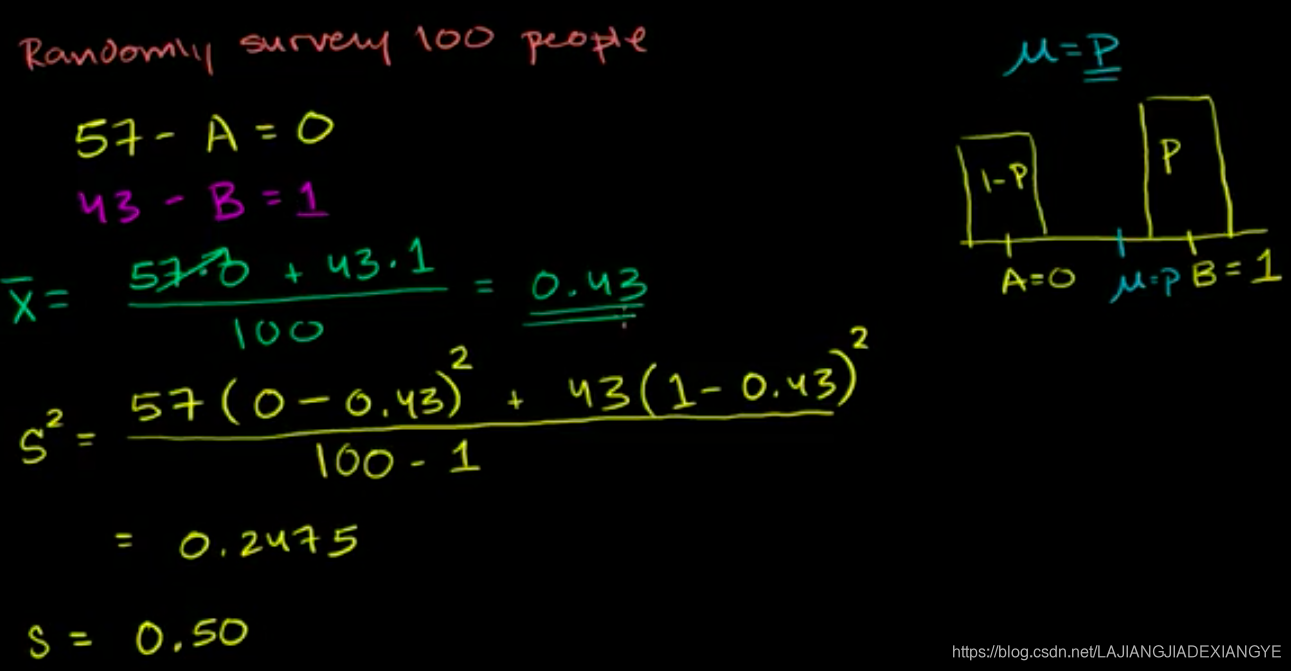 Randomly survey 100 people
57 - A = 0
43 - B = 1
x̄ = (57·0 + 43·1) / 100 = 0.43
S² = (57(0 - 0.43)² + 43(1 - 0.43)²) / (100 - 1)
= 0.2475
S = 0.50
μ = P
1-P
P
A=0 μ=p B=1
https://blog.csdn.net/LAJIANGJIADEXIANGYE